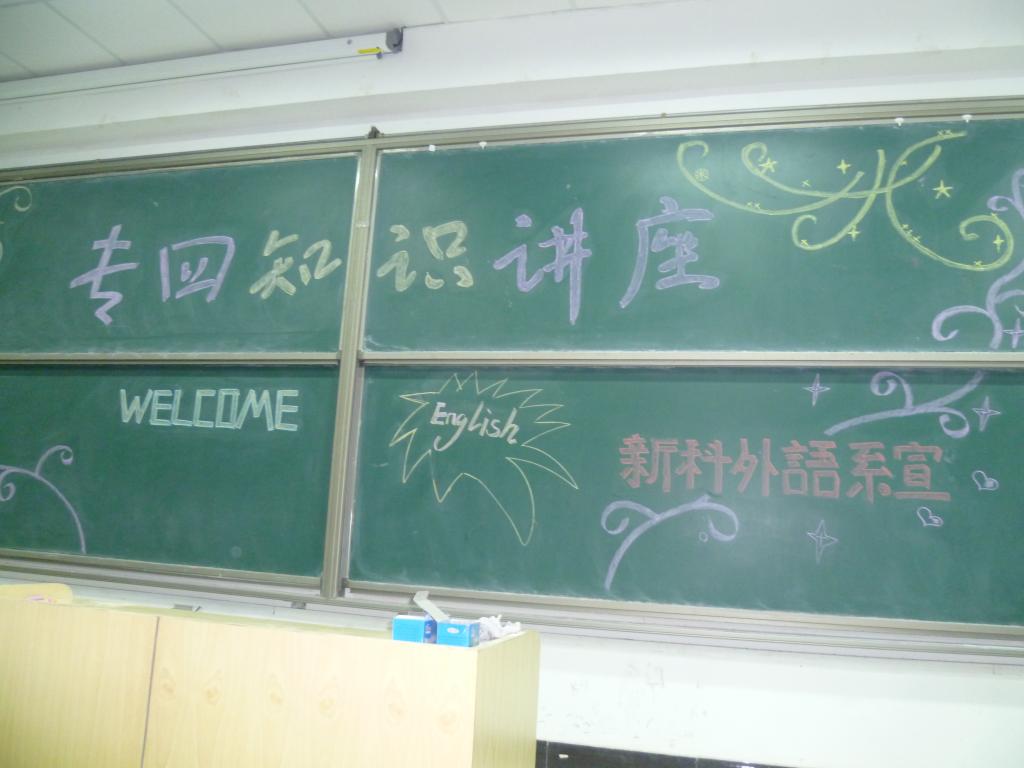 专四知识讲座
WELCOME
English
新科外語系宣